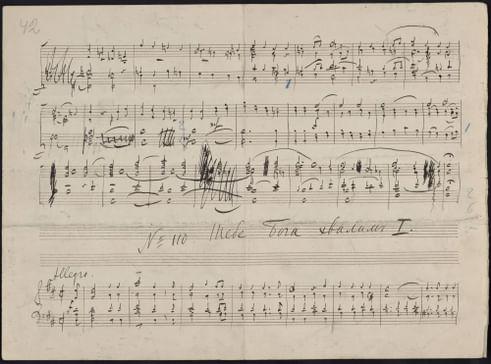 42
№ 110 Тебе Бога хвалимъ I.
Allegro.